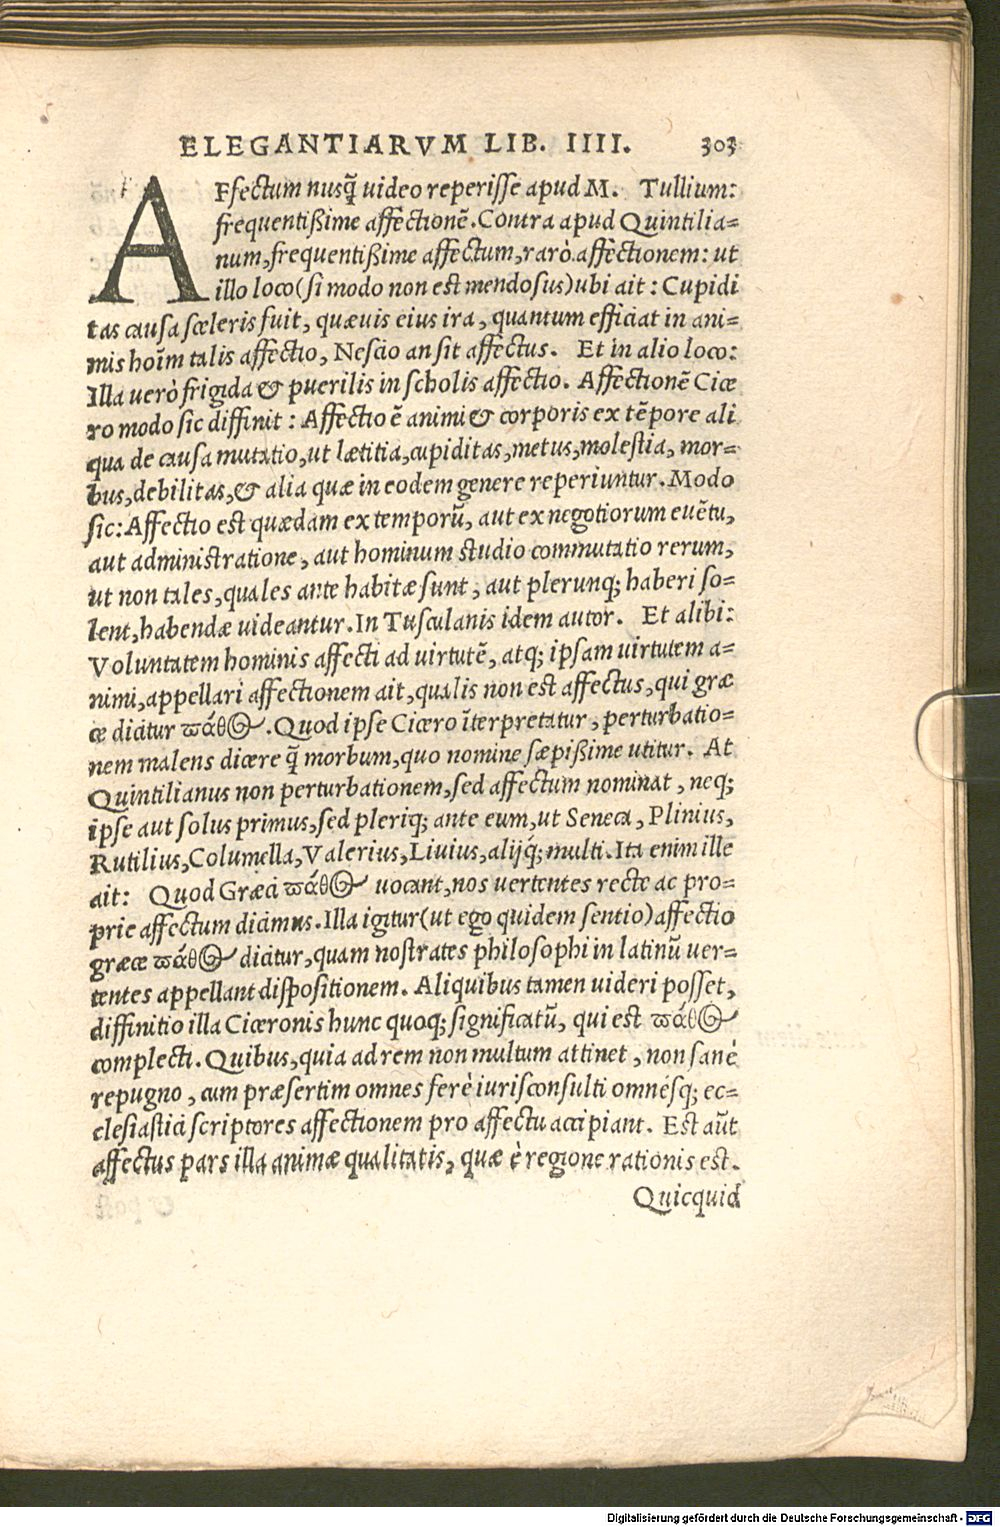 ELEGANTIARVM LIB. IIII. 303
AFfectum nusq̃ uideo reperisse apud M. Tullium:
frequentißime affectionẽ. Contra apud Quintilia=
num, frequentißime affectum, rarò affectionem: ut
illo loco (si modo non est mendosus) ubi ait: Cupidi
tas causa sceleris fuit, quæuis eius ira, quantum efficiat in ani=
mis hoĩm talis affectio, Nescio an sit affectus. Et in alio loco:
Illa uerò frigida & puerilis in scholis affectio. Affectionẽ Cice
ro modo sic diffinit: Affectio ẽ animi & corporis ex tẽpore ali
qua de causa mutatio, ut lætitia, cupiditas, metus, molestia, mor=
bus, debilitas, & alia quæ in eodem genere reperiuntur. Modo
sic: Affectio est quædam ex temporũ, aut ex negotiorum euẽtu,
aut administratione, aut hominum studio commutatio rerum,
ut non tales, quales ante habitæ sunt, aut plerunq; haberi so=
lent, habendæ uideantur. In Tusculanis idem autor. Et alibi:
Voluntatem hominis affecti ad uirtutẽ, atq; ipsam uirtutem a=
nimi, appellari affectionem ait, qualis non est affectus, qui græ
ce dicitur πάθος. Quod ipse Cicero ĩterpretatur, perturbatio=
nem malens dicere q̃ morbum, quo nomine sæpißime utitur. At
Quintilianus non perturbationem, sed affectum nominat, neq;
ipse aut solus primus, sed pleriq; ante eum, ut Seneca, Plinius,
Rutilius, Columella, Valerius, Liuius, alijq́; multi. Ita enim ille
ait: Quod Græci πάθος uocant, nos uertentes recte ac pro=
prie affectum dicimus. Illa igitur (ut ego quidem sentio) affectio
græce πάθος dicitur, quam nostrates philosophi in latinũ uer=
tentes appellant dispositionem. Aliquibus tamen uideri posset,
diffinitio illa Ciceronis hunc quoq; significatũ, qui est πάθος
complecti. Quibus, quia ad rem non multum attinet, non sanè
repugno, cum præsertim omnes ferè iurisconsulti omnésq; ec=
clesiastici scriptores affectionem pro affectu accipiant. Est aũt
affectus pars illa animæ qualitatis, quæ è regione rationis est.
Quicquid
Digitalisierung gefördert durch die Deutsche Forschungsgemeinschaft - DFG